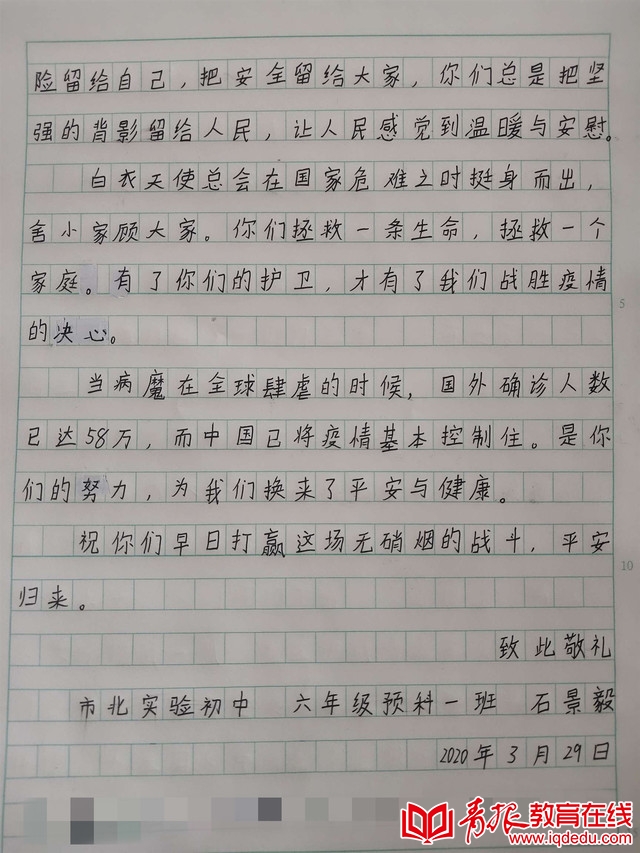 险留给自己，把安全留给大家，你们总是把坚
强的背影留给人民，让人民感觉到温暖与安慰。
白衣天使总会在国家危难之时挺身而出，
舍小家顾大家。你们拯救一条生命，拯救一个
家庭。有了你们的护卫，才有了我们战胜疫情
的决心。
5
当病魔在全球肆虐的时候，国外确诊人数
已达58万，而中国已将疫情基本控制住。是你
们的努力，为我们换来了平安与健康。
祝你们早日打赢这场无硝烟的战斗，平安
归来。
10
致此敬礼
市北实验初中 六年级预科一班 石景毅
2020年3月29日
青报教育在线
www.iqdedu.com